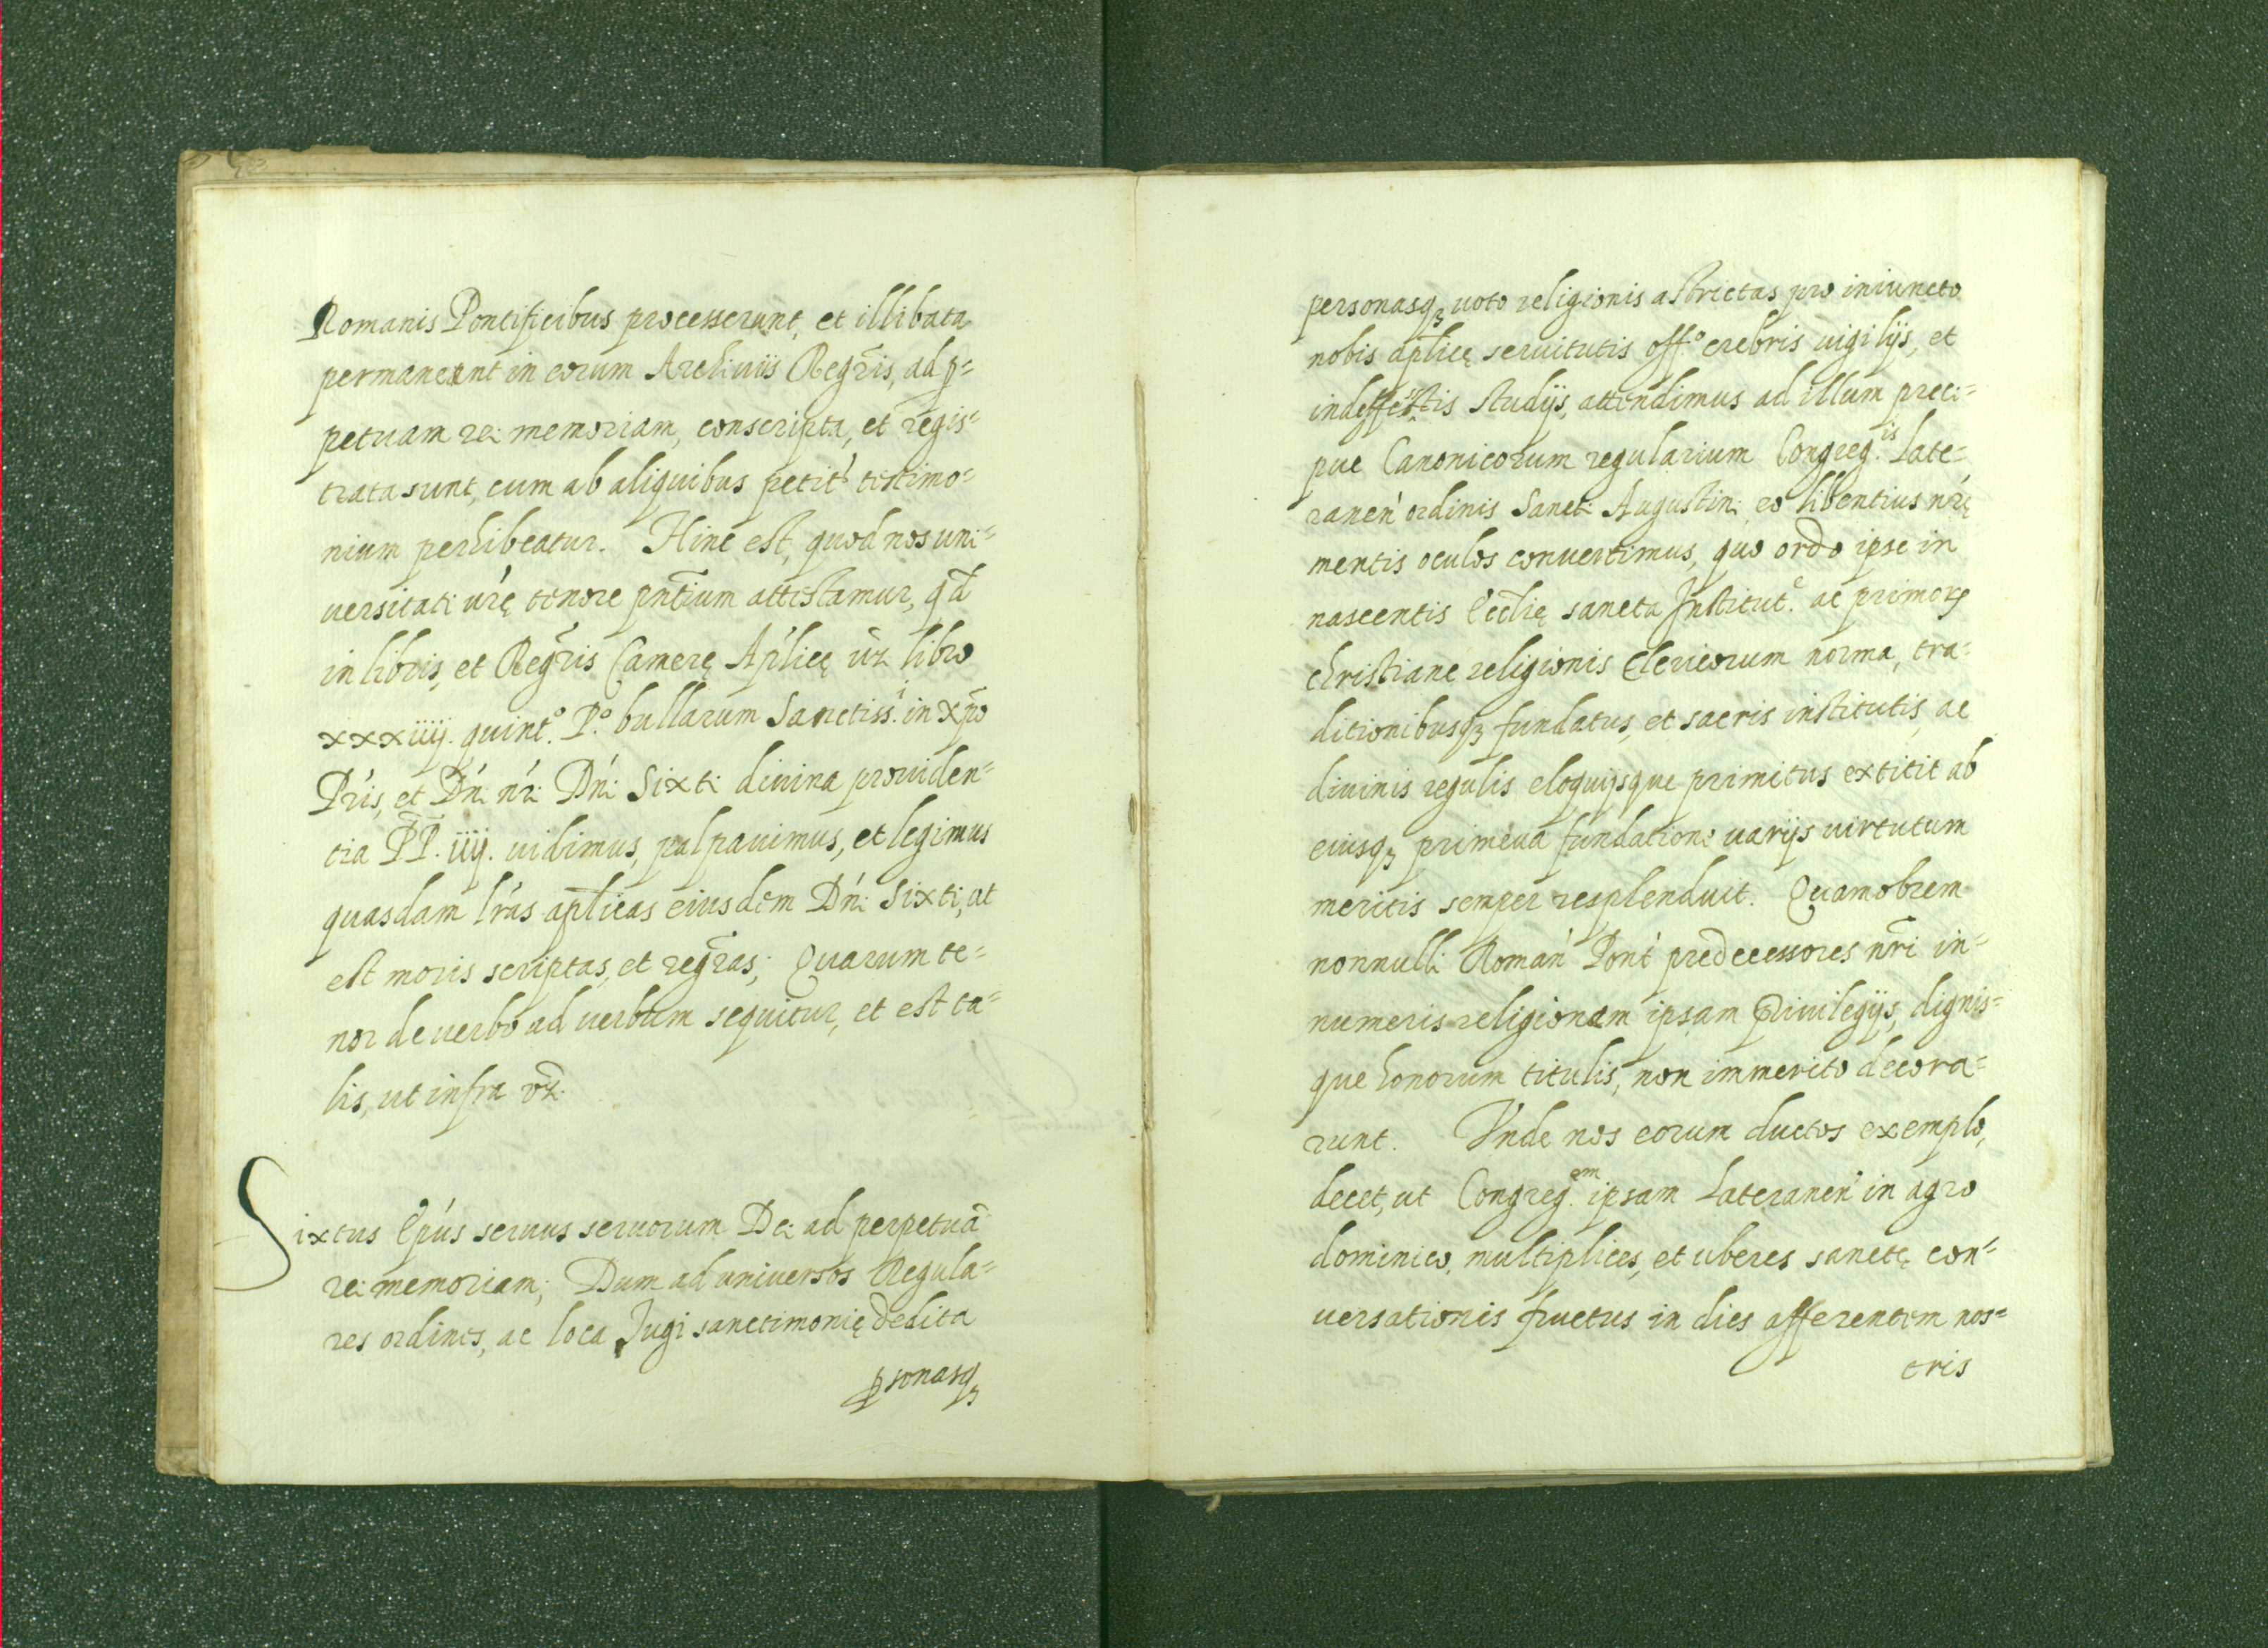 Romanis Pontificibus processerunt, et illibata
permaneant in eorum Archiviis Regr̃is, ad p=
petuam rei memoriam, conscripta, et regis=
trata sunt, cum ab aliquibus petit' testimo=
nium perhibeatur. Hinc est, quod nos uni=
versitati vr̃ę tenore pñtium attestamur, qd̃
in libris, et Regr̃is Camerę Aplicę vz libro
xxxiiij. quint.º P.º bullarum Sanctiss.i in xp̃o
Pr̃is, et Dñi nr̃i Dñi Sixti divina providen=
tia P̃P̃. iiij. vidimus, palpavimus, et legimus
quasdam lr̃as ap̃licas eiusdem Dñi Sixti, ut
est moris scriptas, et regr̃as; Quarum te=
nor de verbo ad verbum sequitur, et est ta=
lis, ut infra vz.
Sixtus Ep̃us servus servorum Dei ad perpetuã
rei memoriam; Dum ad universos Regula=
res ordines, ac loca Jugi sanctimonię dedita
ꝑsonasqꝫ
personasqꝫ voto religionis astrictas pro iniuncto
nobis ap̃licę servitutis off.º crebris vigilijs, et
indeffessis studijs, attendimus ad illum preci=
pue Canonicorum regularium Congreg.is Late=
raneñ ordinis Sancti Augustini eo libentius nr̃ę
mentis oculos convertimus, quo ordo ipse in
nascentis Eccl̃ię sancta Institut.e ac primorꝝ
christiane religionis Clericorum norma, tra=
ditionibusqꝫ fundatus, et sacris institutis, ac
divinis regulis eloquijsque primitus extitit ab
eiusqꝫ primeva fundatione varijs virtutum
meritis semper resplenduit. Quamobrem
nonnulli Romañ Pont' predecessores nr̃i in=
numeris religionem ipsam privilegijs, dignis=
que honorum titulis, non immerito decora=
runt. Vnde nos eorum ductos exemplo,
decet, ut Congreg.em ipsam Lateraneñ in agro
dominico, multiplices, et uberes sanctę con=
versationis fructus in dies afferentem nos=
tris